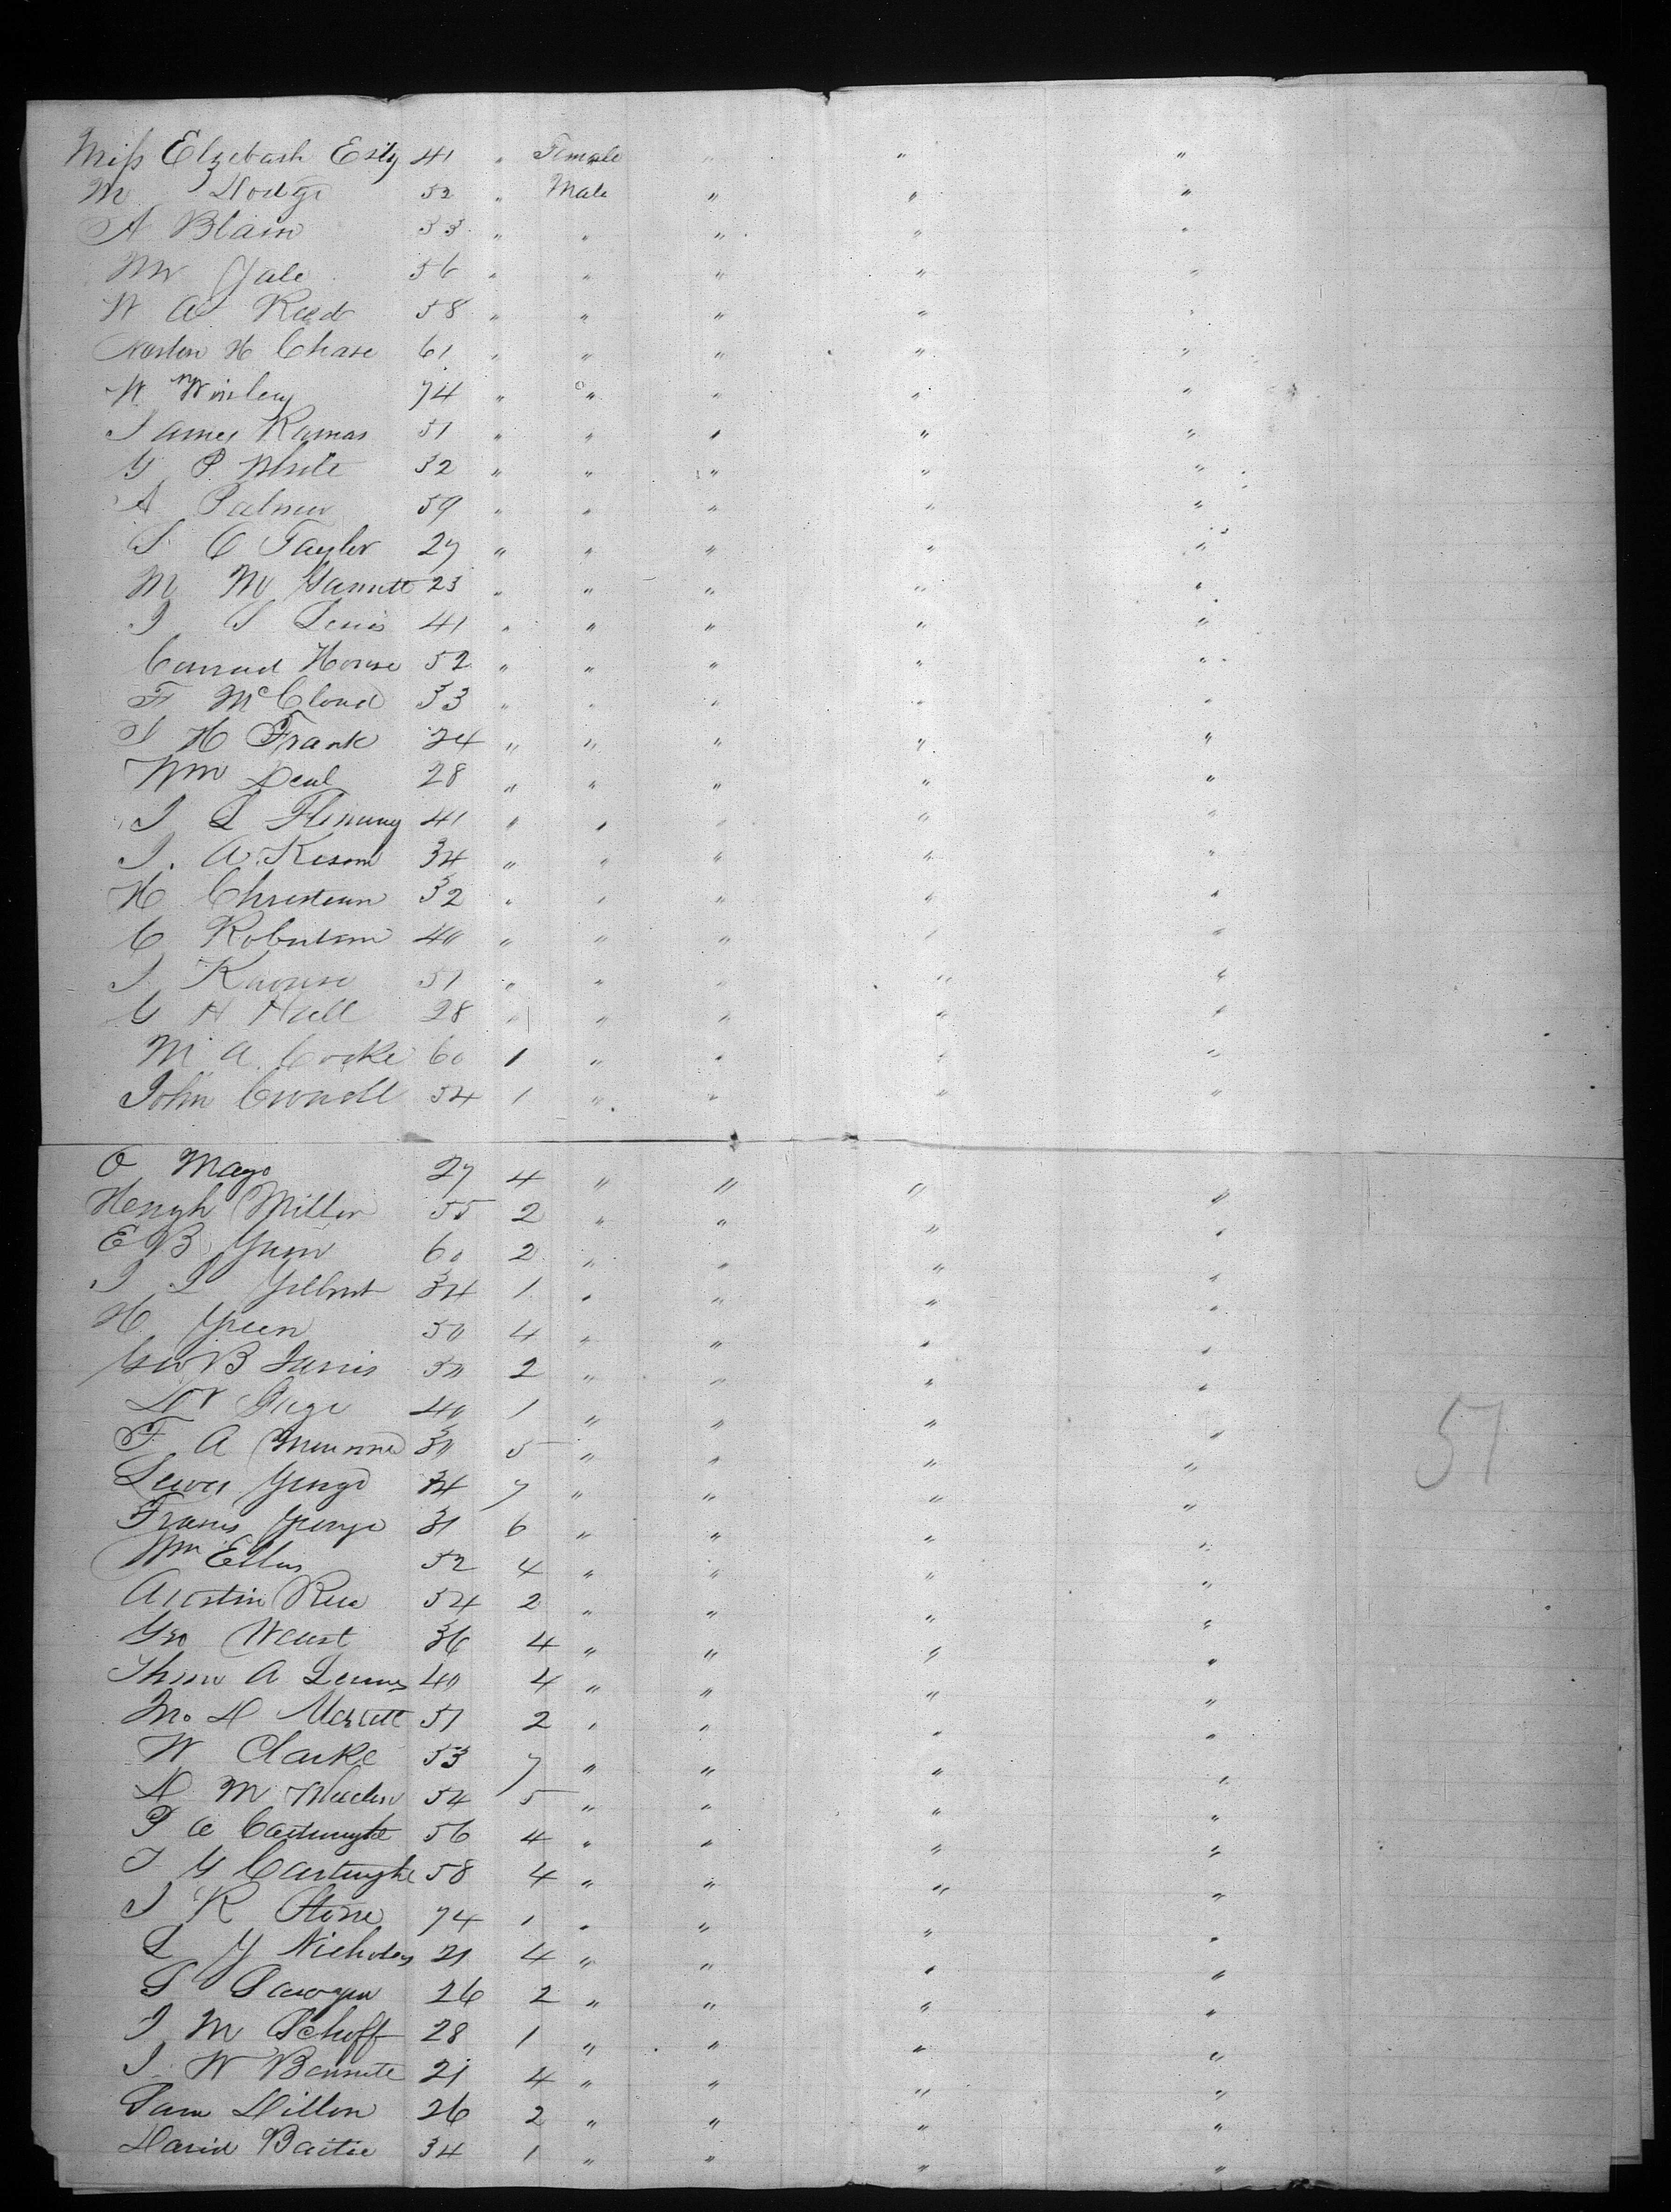 Miss Elzebash Esty 41 " Female " " "
M Dodge 52 " Male " " "
A Blain 33 " " " " "
Mr Gale 56 " " " " "
W A Reed 58 " " " " "
Norton H Chase 61 " " " " "
W Winley 74 " " " " "
James Ramas 51 " " " " "
G P White 32 " " " " "
A Palmer 59 " " " " "
S C Tayler 27 " " " " "
M M Garnett 23 " " " " "
J S Lewis 41 " " " " "
Conrad House 52 " " " " "
F McCloud 33 " " " " "
J H Frank 24 " " " " "
Wm Deal 28 " " " " "
J L Flemung 41 " " " " "
J. A. Kesom 34 " " " " "
H Christean 32 " " " " "
C Robertson 40 " " " " "
J 51 " " " " "
G H Hall 28 " " " " "
M A Cooke 60 1 " " " "
John 54 1 " " " "
O Mayo 27 4 " " " "
Hengh Miller 55 2 " " " "
E B Gunn 60 2 " " " "
J L Gilbert 34 1 " " " "
H Green 50 4 " " " "
Geo B Jarvis 50 2 " " " "
Dr Gage 40 1 " " " "
F A 30 5 " " " "
Lewis George 34 7 " " " "
Francis George 31 6 " " " "
Wm Ellis 52 4 " " " "
Austin Rice 54 2 " " " "
Geo Weast 36 4 " " " "
A Lewis 40 4 " " " "
Jno D 51 2 " " " "
W Clarke 53 7 " " " "
D M 54 5 " " " "
P A Cartwright 56 4 " " " "
J G Cartwright 58 4 " " " "
J R Stone 74 1 " " " "
L G Nicholas 21 4 " " " "
S 26 2 " " " "
J M Schoff 28 1 " " " "
J. W Bennett 21 4 " " " "
Sam Dillon 26 2 " " " "
David Baitie 34 1 " " " "
57